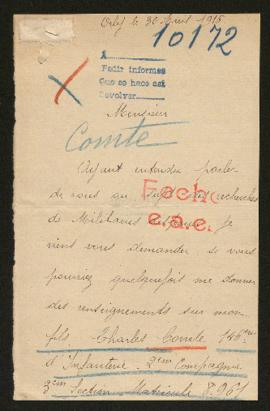 Orly le 30 Avril 1915
10172
A
Pedir informes
Que se hace así
Devolver
Monsieur
Comte
Ayant entendu parler
de vous au sujet des recherches
Fecho
de Militaires disparus je
e.a.e.
viens vous demander si vous
pourriez quelquefois me donner
des renseignements sur mon
fils Charles Comte
d'Infanterie 2ème Compagnie
3ème Section Matricule 8961